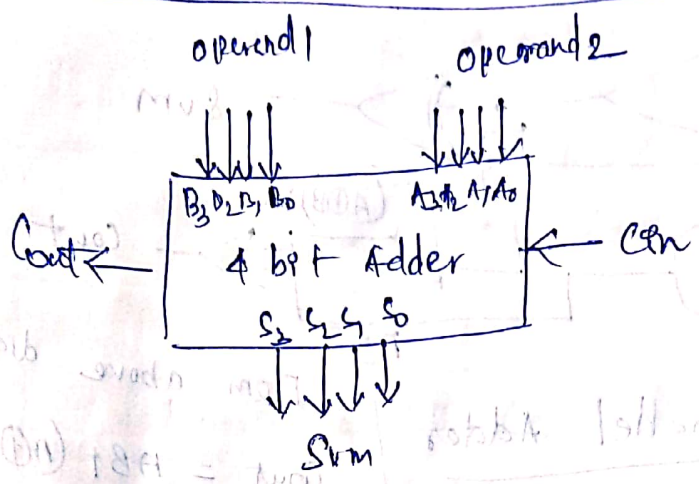 operend 1 operand 2
B3 B2 B1 B0 A3 A2 A1 A0
Cout 4 bit Adder Cin
S3 S2 S1 S0
Sum